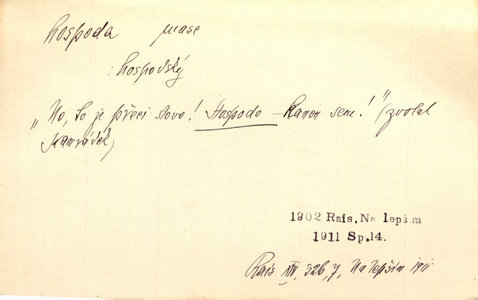 hospoda mase
: hospodský
„No, to je přeci slovo! Hospodo – Ranon sem!" (zvolal
1902 Rais, Na lepším
1911 Sp. 14.
Rais XIV, 326, 7, Na lepším 191